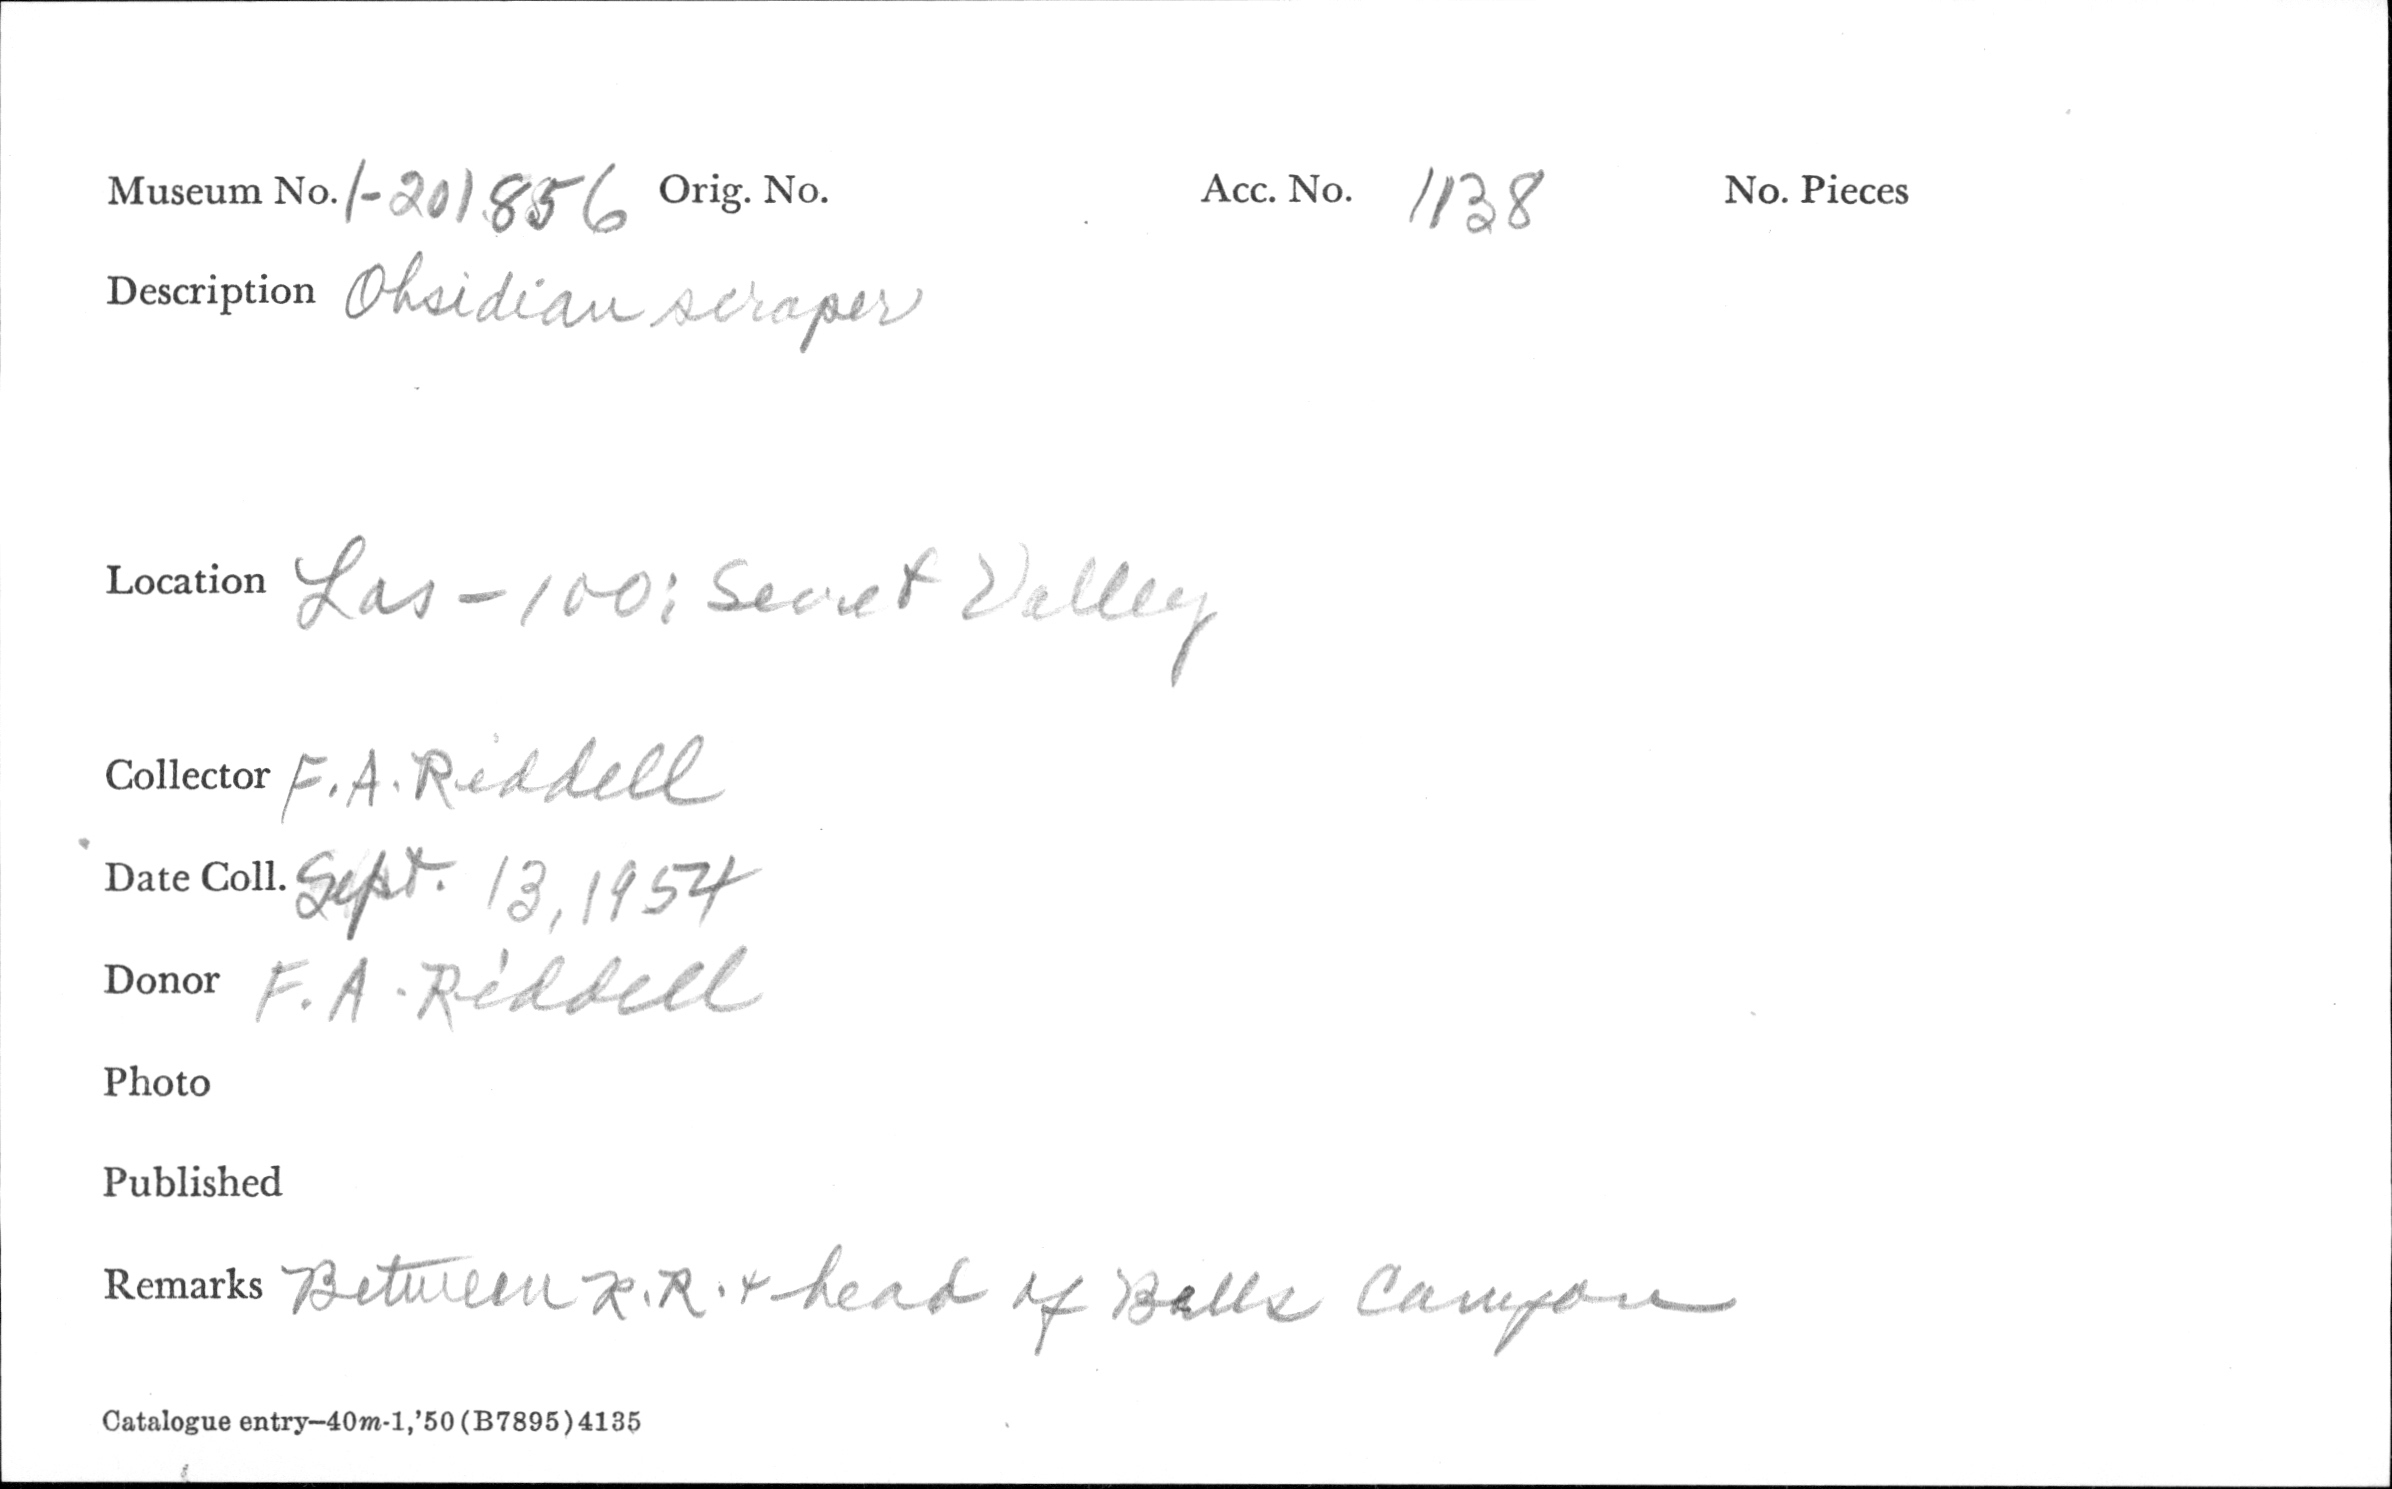 Museum No. 1-201856 Orig. No. Acc. No. 1138 No. Pieces
Description Obsidian scraper
Location Las-100; Secret Valley
Collector F. A. Riddell
Date Coll. Sept. 13, 1954
Donor F. A. Riddell
Photo
Published
Remarks Between R.R. + head of Balls Canyon
Catalogue entry—40m-1,'50(B7895)4135